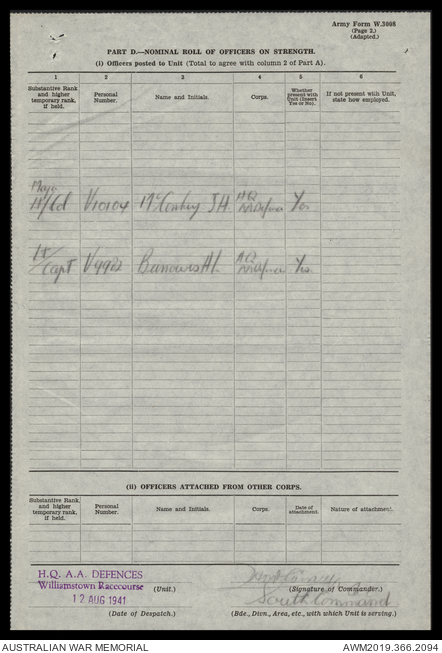 Army Form W.3008
(Page 2.)
(Adapted.)
PART D.—NOMINAL ROLL OF OFFICERS ON STRENGTH.
(i) Officers posted to Unit (Total to agree with column 2 of Part A).
1 2 3 4 5 6
Substantive Rank and higher temporary rank, if held. Personal Number. Name and Initials. Corps. Whether present with Unit (Insert Yes or No). If not present with Unit, state how employed.
Lt/Col V10104 McConkey J H. HQ Yes
Lt/Capt V9922 H.Q. Yes.
(ii) OFFICERS ATTACHED FROM OTHER CORPS.
Substantive Rank, and higher temporary rank, if held. Personal Number. Name and Initials. Corps. Date of attachment. Nature of attachment.
H.Q. A.A. DEFENCES
Williamstown Racecourse (Unit.) (Signature of Commander.)
12 AUG 1941 South Command
(Date of Despatch.) (Bde., Divn., Area, etc., with which Unit is serving.)
AUSTRALIAN WAR MEMORIAL AWM2019.366.2094